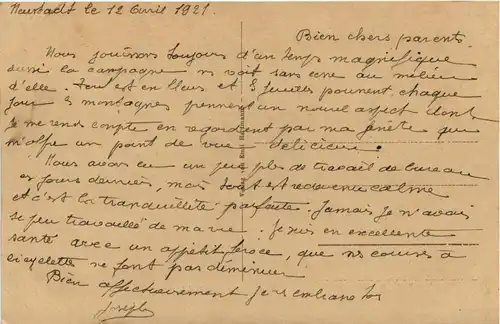 Neustadt le 12 Avril 1921.
Bien chers parents.
Nous jouissons toujours d'un temps magnifique
aussi la campagne ns voit sans cesse au milieu
d'elle. Tout est en fleurs et feuilles poussent, chaque
jour montagnes prennent un nouvel aspect dont
je me rends compte en regardant par ma fenêtre qui
m'offre un point de vue délicieux.
Nous avons eu un peu plus de travail de bureau
es jours derniers, mais tout est redevenu calme
et c'est la tranquillité parfaite. Jamais je n'avais
si peu travaillé de ma vie. Je suis en excellente
santé avec un appétit féroce, que ns courses à
bicyclette ne font pas diminuer.
Bien affectueusement je vs embrasse tos
Joseph